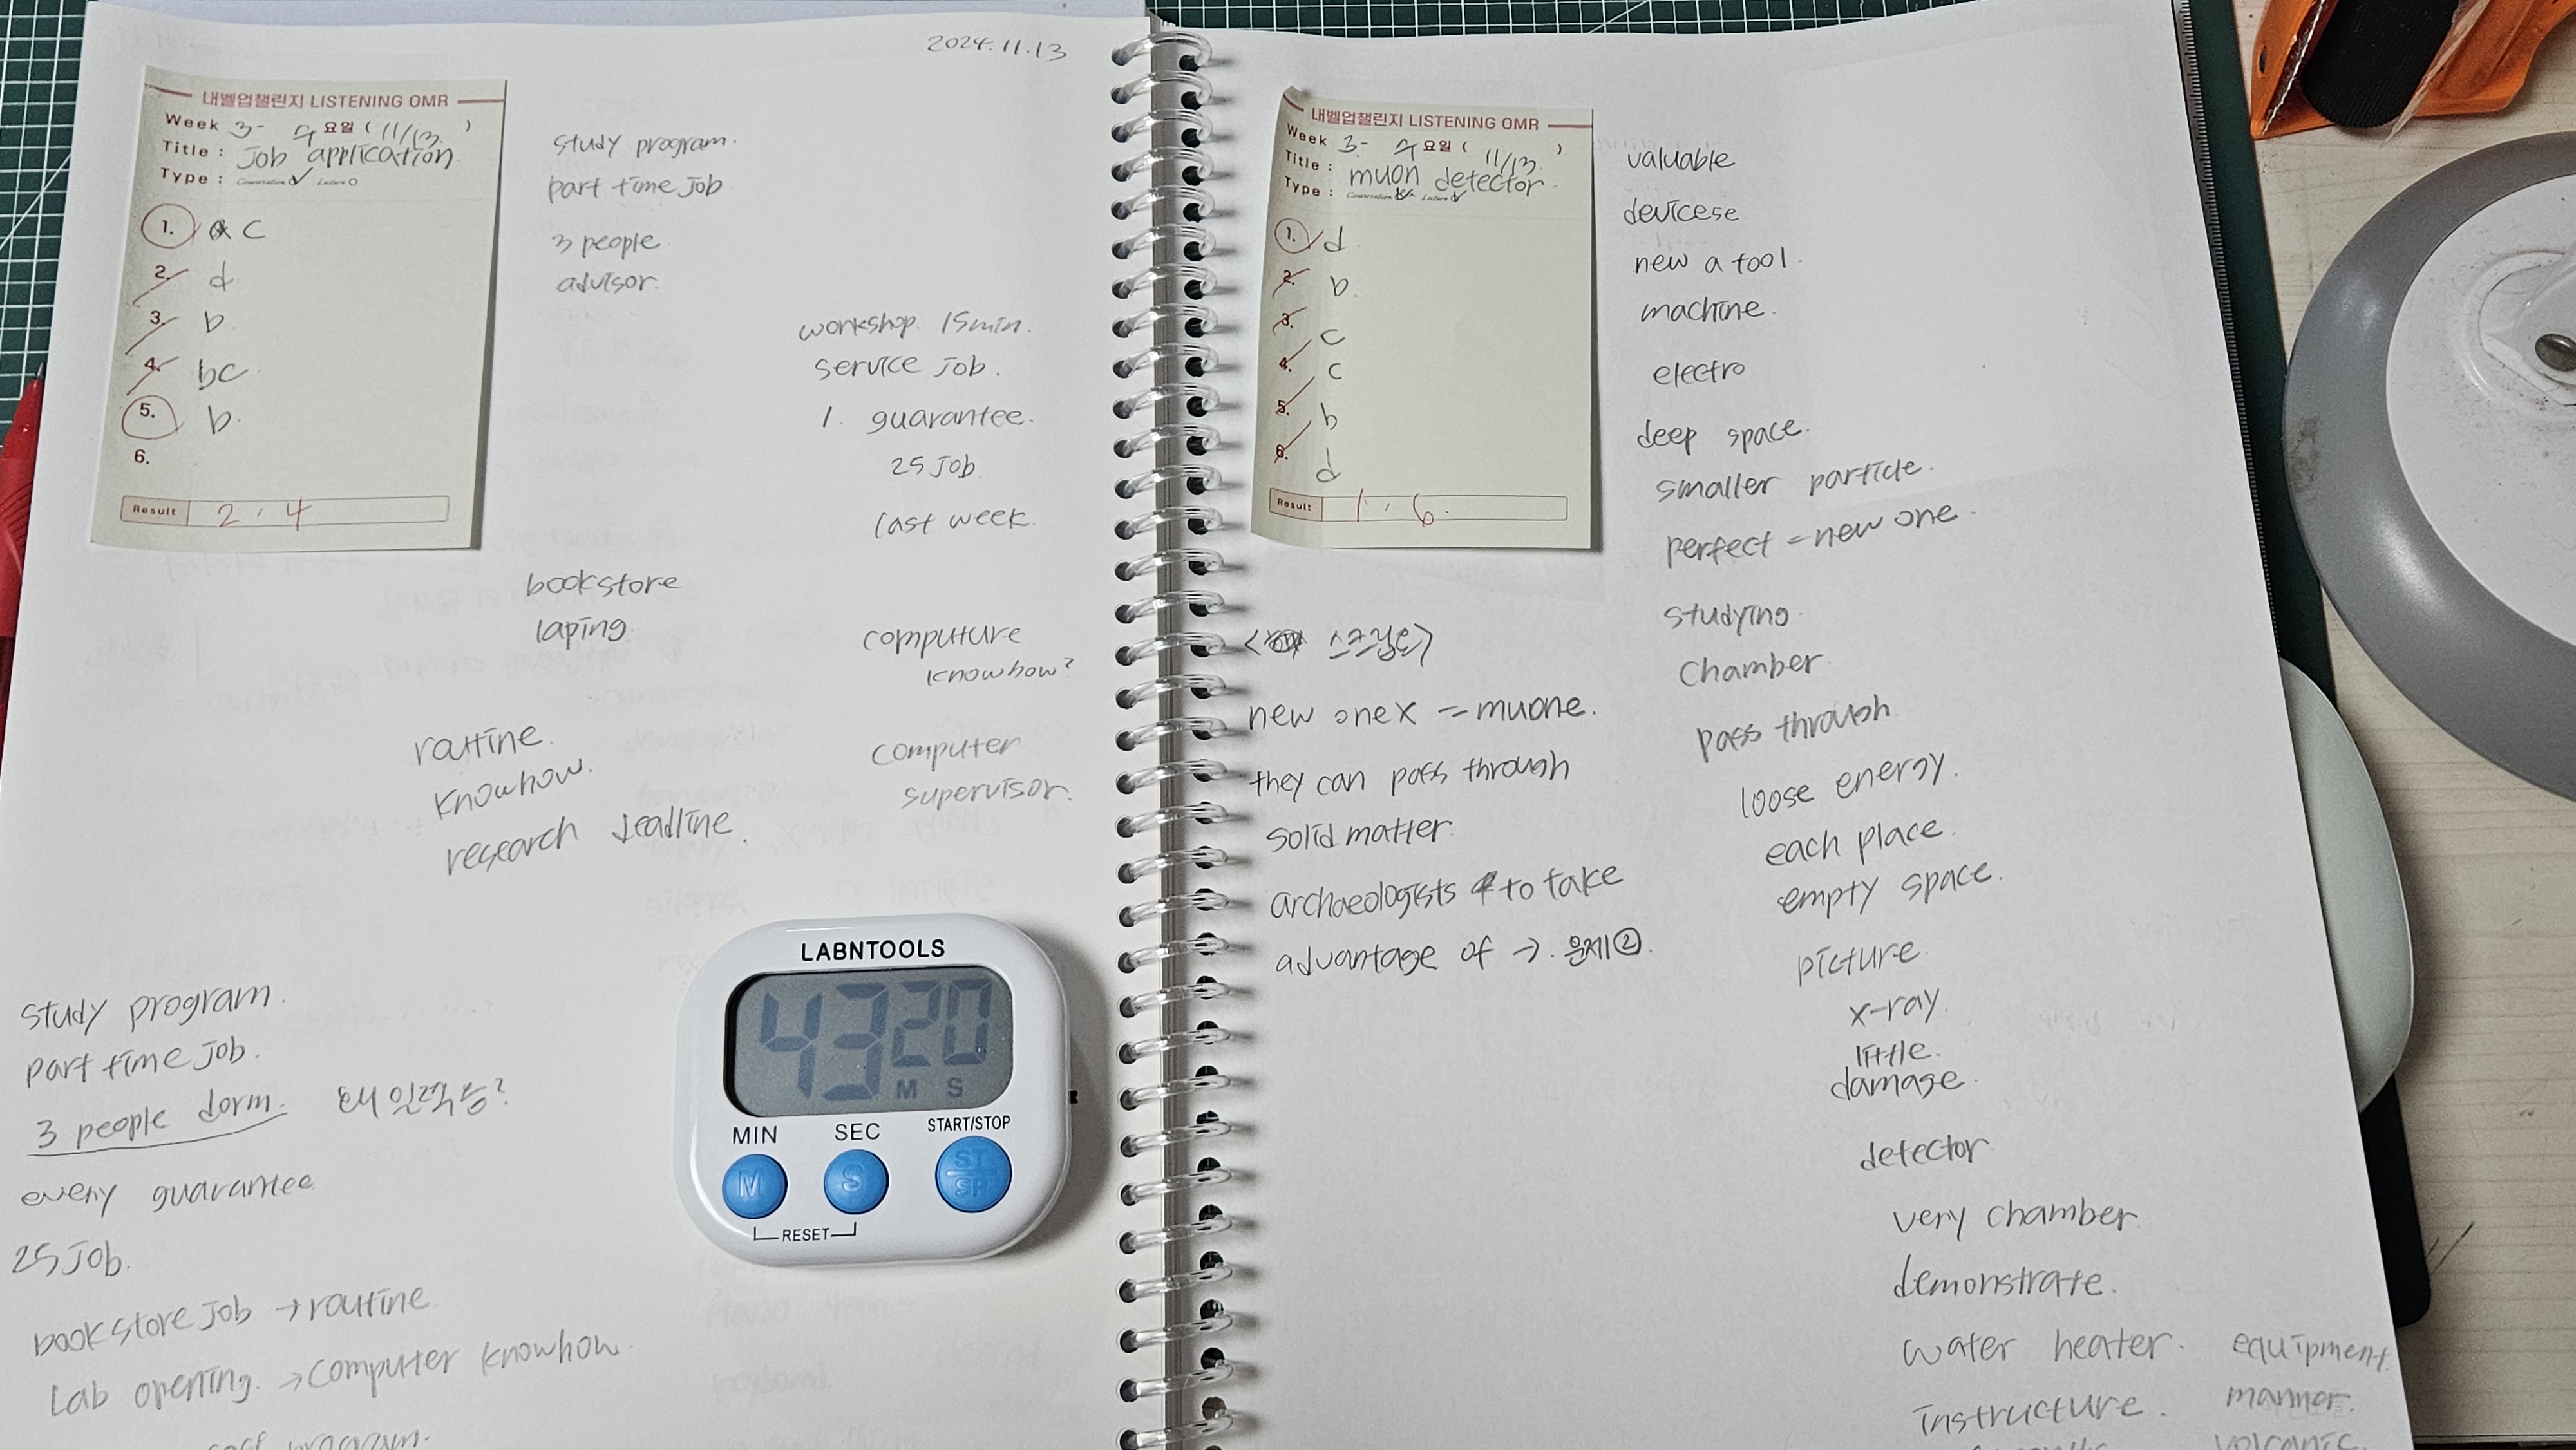 2024.11.13
내벨업챌린지 LISTENING OMR
Week 3- 수요일 ( 11/13. )
Title : Job application
Type : Conversation Lecture
1. c
2. d
3. b
4. bc
5. b.
6.
Result 2, 4
study program.
part time Job
3 people
advisor.
workshop. 15min.
service Job.
1. guarantee.
25 Job
last week.
bookstore
laping.
computure
knowhow?
routine.
knowhow.
research deadline.
computer
supervisor.
study program.
part time Job.
3 people dorm.
every guarantee
25 Job.
bookstore Job → routine
Lab opening. → Computer knowhow.
program.
LABNTOOLS
43 20
M S
MIN SEC START/STOP
M S ST SP
RESET
내벨업챌린지 LISTENING OMR
Week 3- 수요일 ( 11/13. )
Title : muon detector.
Type : Conversation Lecture
1. d
2. b.
3. c
4. c
5. b
6. d
Result 1, 6.
<스크립트>
new one x = muone.
they can pass through
solid matter.
archaeologists to take
advantage of →. 문제②.
valuable
devicese
new a tool.
machine.
electro
deep space.
smaller particle.
perfect = new one.
studying.
Chamber.
pass through
loose energy.
each place.
empty space.
picture
x-ray.
little.
damage.
detector
very chamber
demonstrate.
water heater. equipment.
instructure. manner.
volcanic